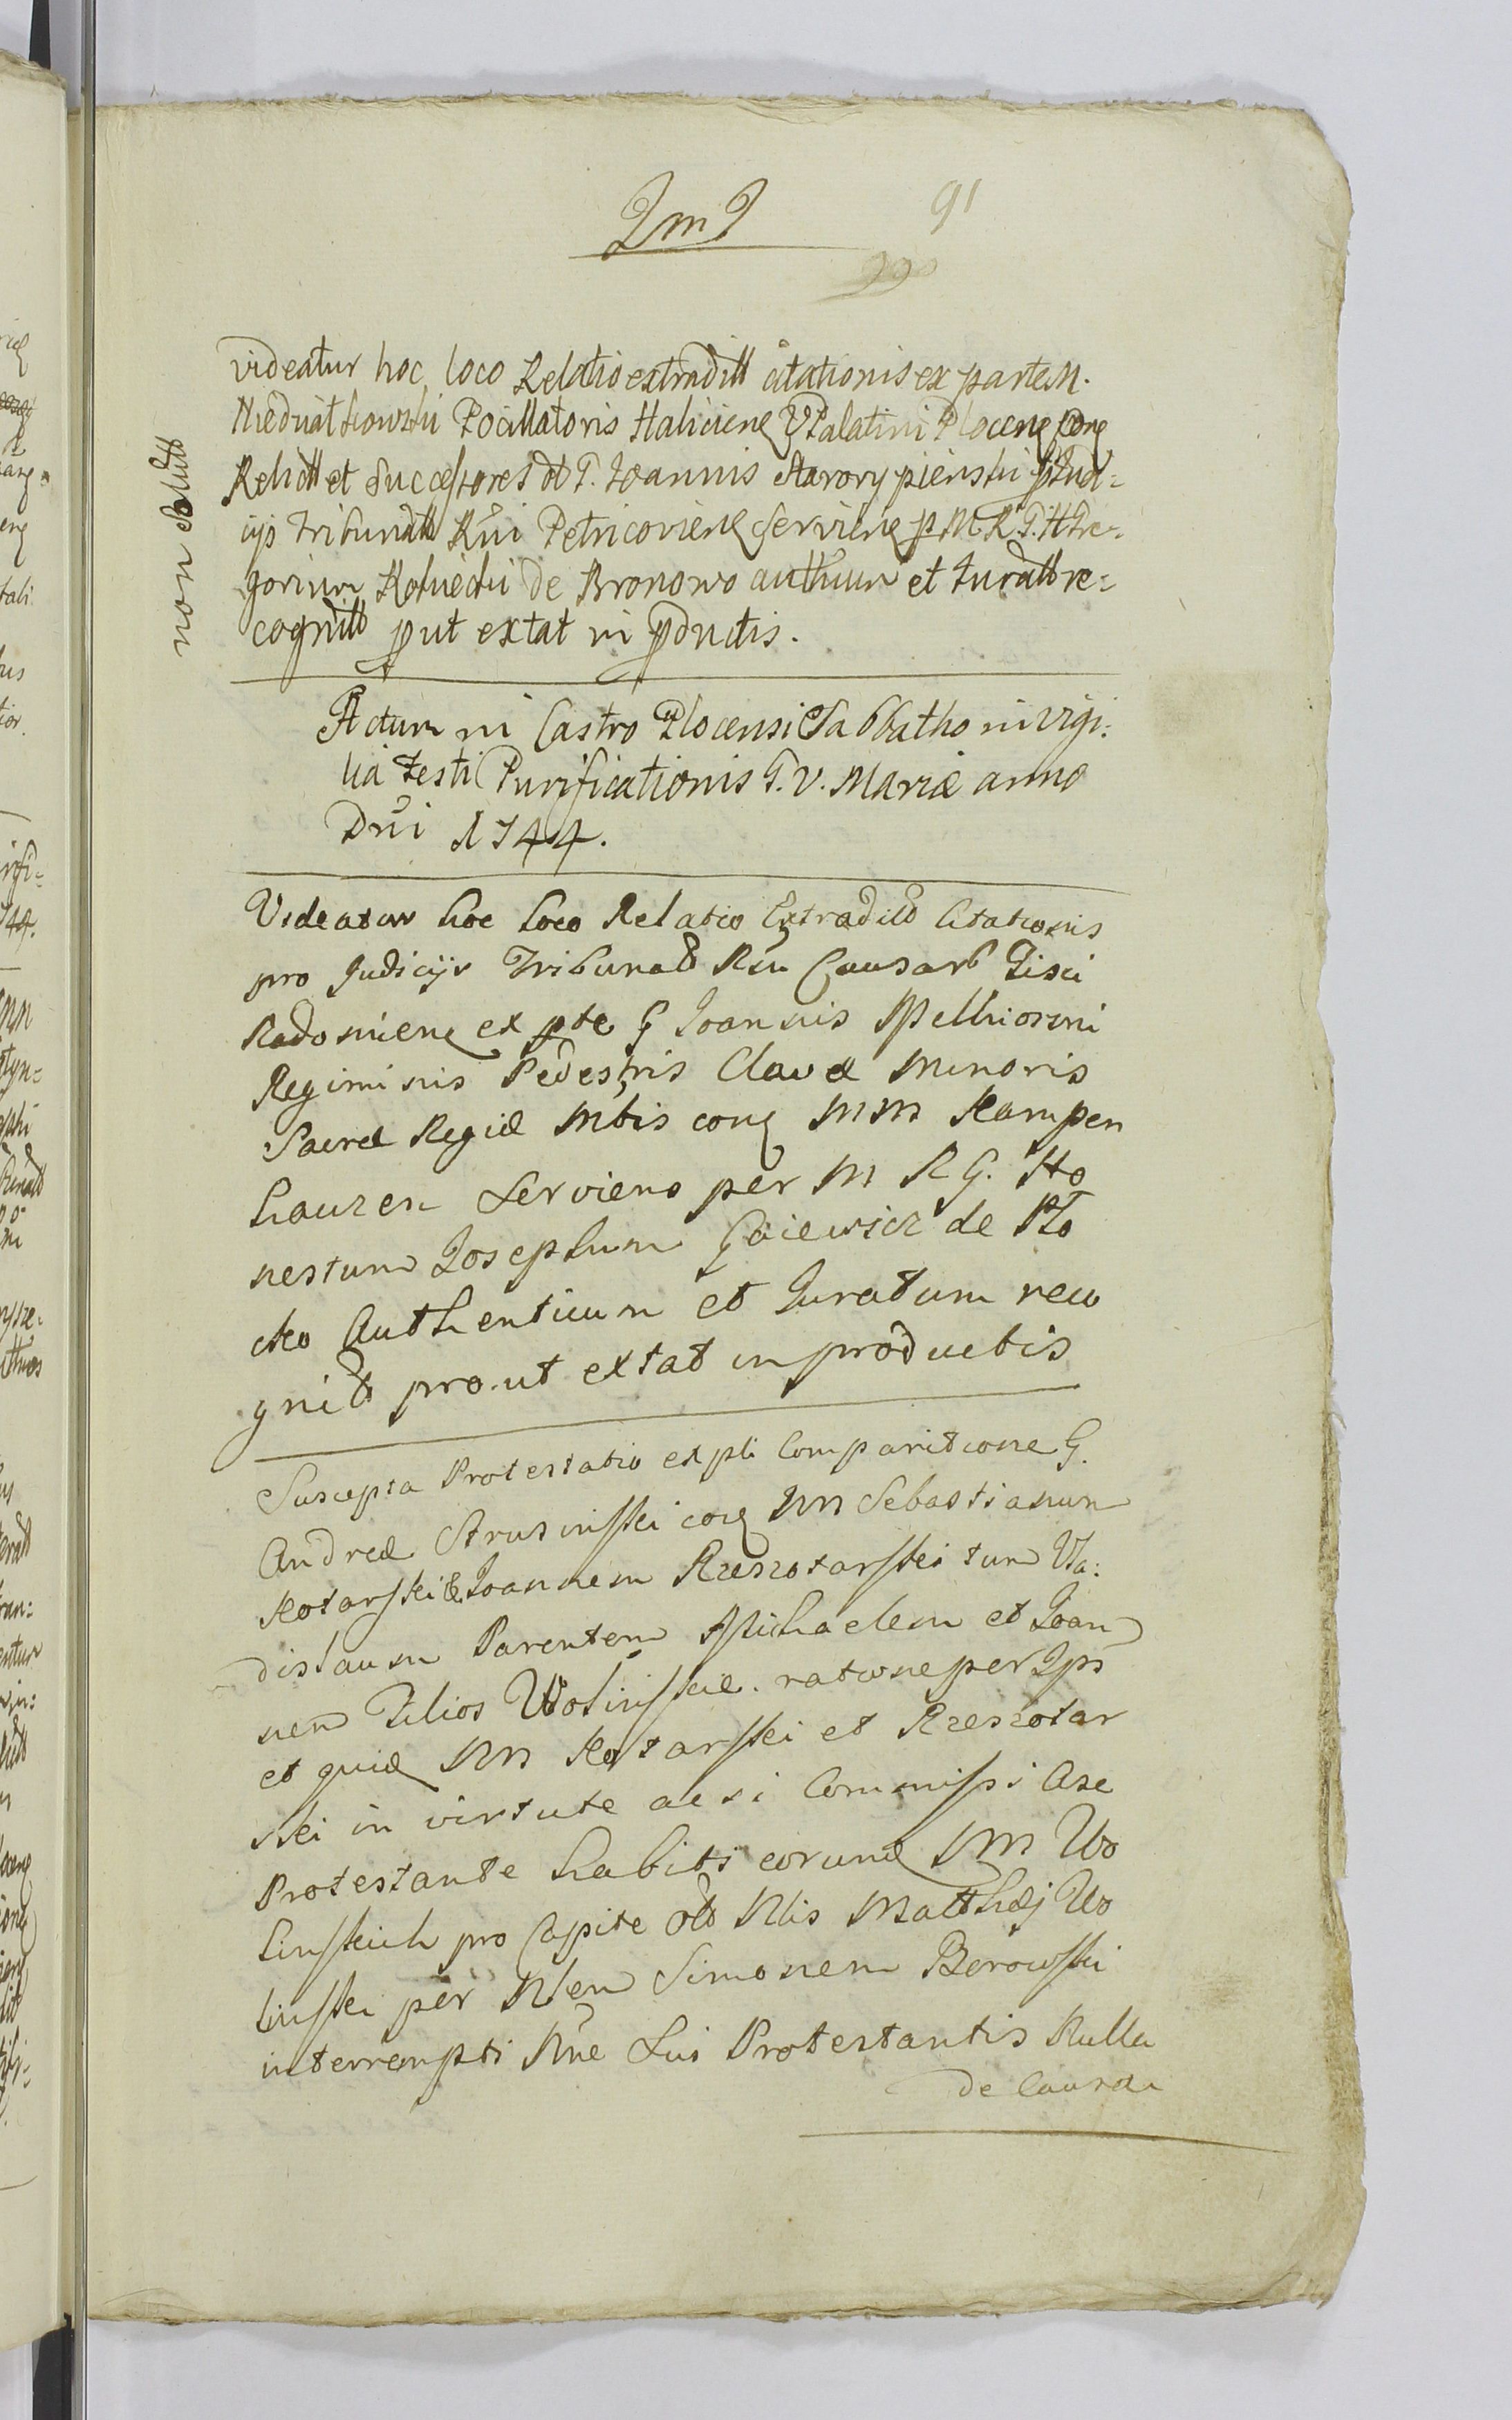 ImI
91
99
videatur hoc loco Relatio extradit citationis ex parte M.
Niedrviałkowski Pocillatoris Haliciens V Palatini Plocens cons
Relict et Successores ol G. Joannis Starorypienski p Jud=
icijs Tribunal Rni Petricoviens serviens p M. R. G. H Gre=
gorium de Bronowo authum et Jurat re=
cognit put extat in pductis.
non solvit
Actum in Castro Plocensi Sabbatho in vigi:
lia Festi Purificationis B. V. Mariæ anno
Dni 1744.
Videatur hoc loco Relatio Extradit Citationis
pro Judicijs Tribunal Rni Causar Fisci
Radomiens ex pte G Joannis Melhiorini
Regiminis Pedestris Clavæ Minoris
Sacræ Regiæ Mttis cons MM Kampen
hauzen Serviens per M R G. Ho
nestum Josephum Gaiewicz de Plo
cko Authenticum et Juratum reco
gnit pro ut extat in productis
Suscepta Protestatio ex pli Comparitione G.
Andreæ Strusinski cons NN Sebastianum
Kotarski & Joannem Rzeszotarski tum Vla:
dislaum Parentem Michaelem et Joan
nem Filios Wolinskie. ratione per Ips
et quid NN Kotarski et Rzeszotar
ski in virtute acsi Commissi a se
Protestante habiti eorund NN Wo
linskich pro Capite ol Nlis Matthæj Wo
linski per Nlem Simonem Berowski
interrempti Nne Sui Protestantis Nulla
de Causa